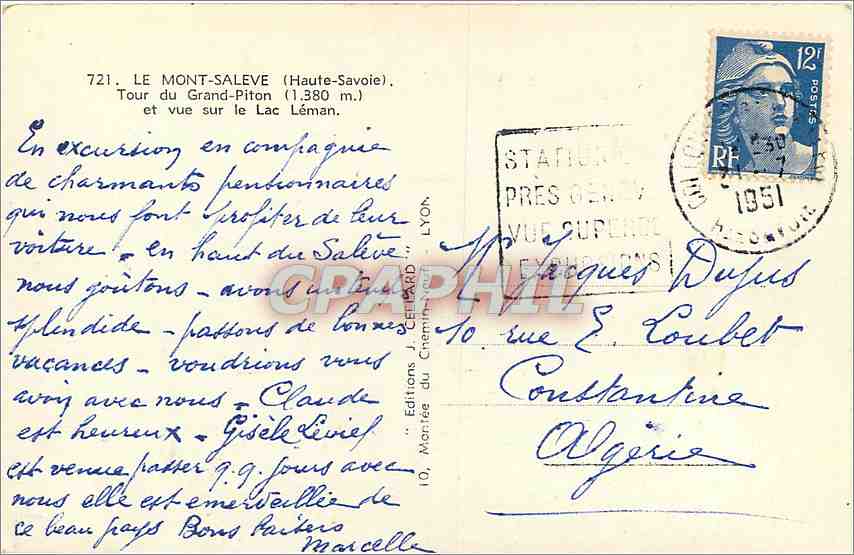 721. LE MONT-SALEVE (Haute-Savoie).
Tour du Grand-Piton (1.380 m.)
et vue sur le Lac Léman.
En excursion en compagnie
de charmants pensionnaires
qui nous font profiter de leur
voiture - en haut du Salève
nous goûtons - avons un temps
splendide - passons de bonnes
vacances - voudrions vous
avoir avec nous - Claude
est heureux - Gisèle
est venue passer q.q. jours avec
nous elle est émerveillée de
ce beau pays Bons baisers
Marcelle
" Editions J. CELLARD "
10, Montée du Chemin-Neuf - LYON
12F
POSTES
RF
STATION
PRÈS GENEV
VUE SUPERBE
EXCURSIONS
1951
Hte SAVOIE
Mr Jacques Dufus
10. rue E. Loubet
Constantine
Algérie
CPAPHIL